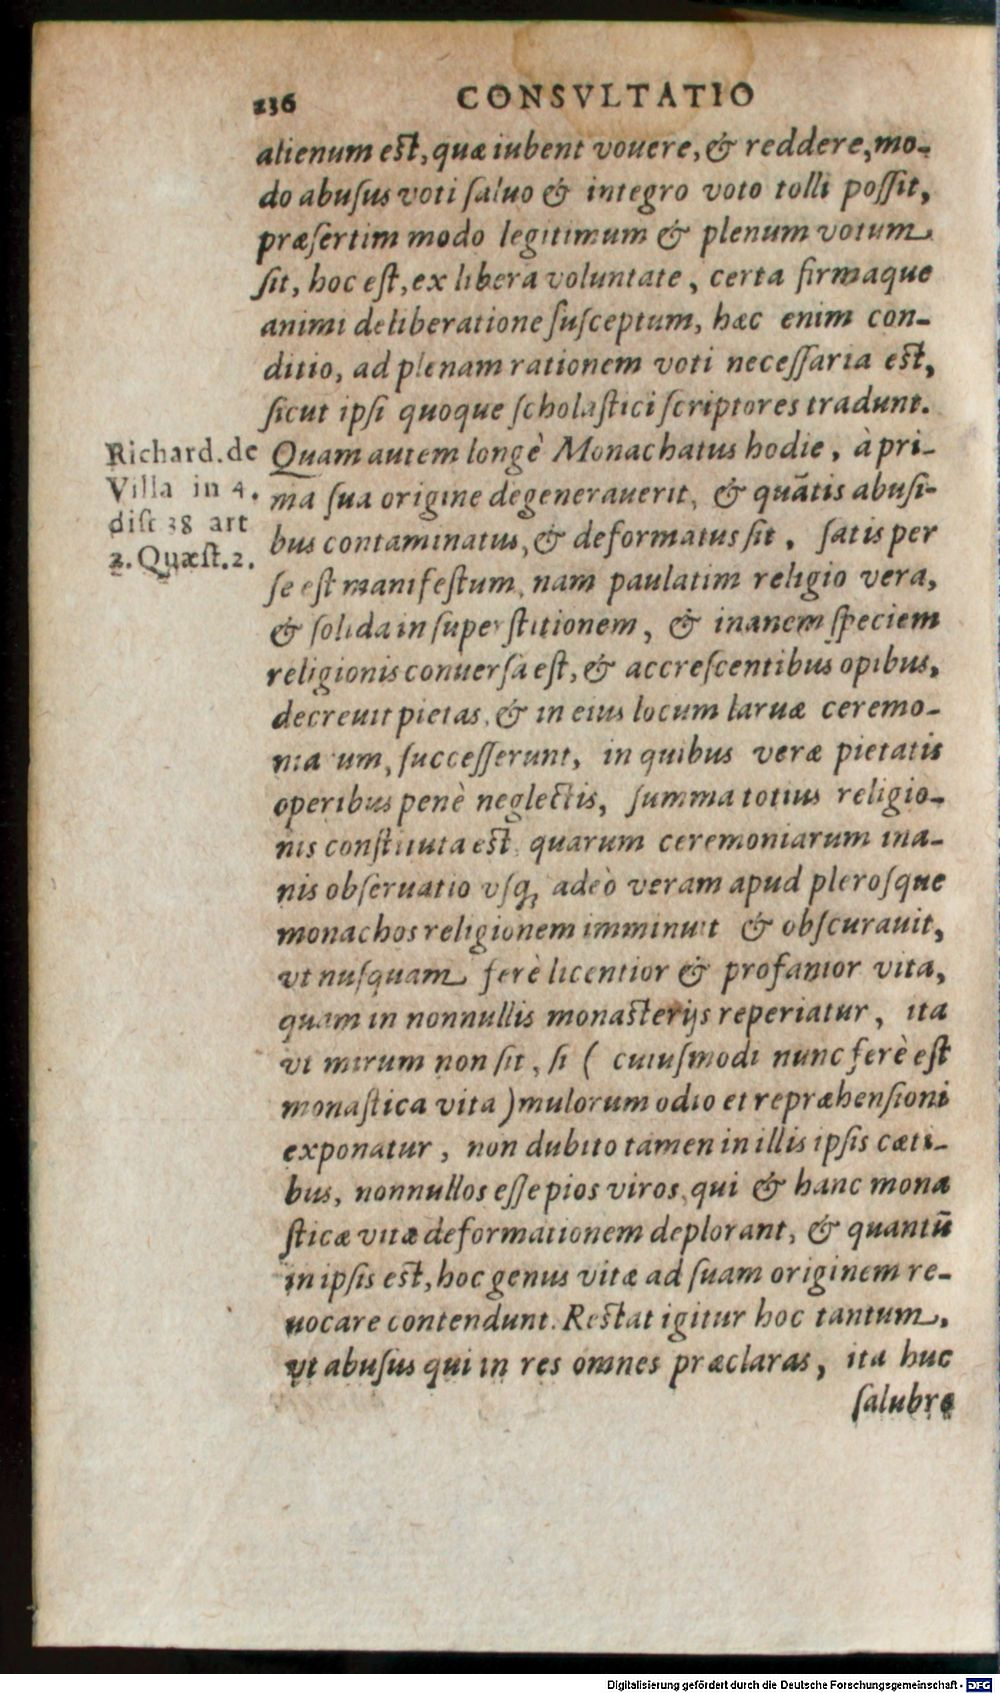 236 CONSVLTATIO
alienum est, quæ iubent vouere, & reddere, mo-
do abuſus voti ſaluo & integro voto tolli poſſit,
præſertim modo legitimum & plenum votum
ſit, hoc eſt, ex libera voluntate, certa firmaque
animi deliberatione ſuſceptum, hæc enim con-
ditio, ad plenam rationem voti neceſſaria est,
ſicut ipſi quoque ſcholaſtici ſcriptores tradunt.
Richard. de
Villa in 4.
diſt 38 art
2. Quæſt. 2.
Quam autem longè Monachatus hodie, à pri-
ma ſua origine degenerauerit, & quãtis abuſi-
bus contaminatus, & deformatus ſit, ſatis per
ſe eſt manifeſtum, nam paulatim religio vera,
& ſolida in superſtitionem, & inanem ſpeciem
religionis conuerſa eſt, & accreſcentibus opibus,
decreuit pietas, & in eius locum laruæ ceremo-
niarum, ſucceſſerunt, in quibus veræ pietatis
operibus penè neglectis, ſumma totius religio-
nis conſtituta est, quarum ceremoniarum ina-
nis obſeruatio vſq; adeò veram apud pleroſque
monachos religionem imminuit & obſcurauit,
vt nuſquam ferè licentior & profanior vita,
quam in nonnullis monasterijs reperiatur, ita
vt mirum non ſit, ſi ( cuiuſmodi nunc ferè eſt
monaſtica vita ) mulorum odio et repræhenſioni
exponatur, non dubito tamen in illis ipſis cœti-
bus, nonnullos eſſe pios viros, qui & hanc mona
ſticæ vitæ deformationem deplorant, & quantū
in ipſis est, hoc genus vitæ ad ſuam originem re-
uocare contendunt. Restat igitur hoc tantum,
vt abuſus qui in res omnes præclaras, ita huc
ſalubre
Digitalisierung gefördert durch die Deutsche Forschungsgemeinschaft - DFG